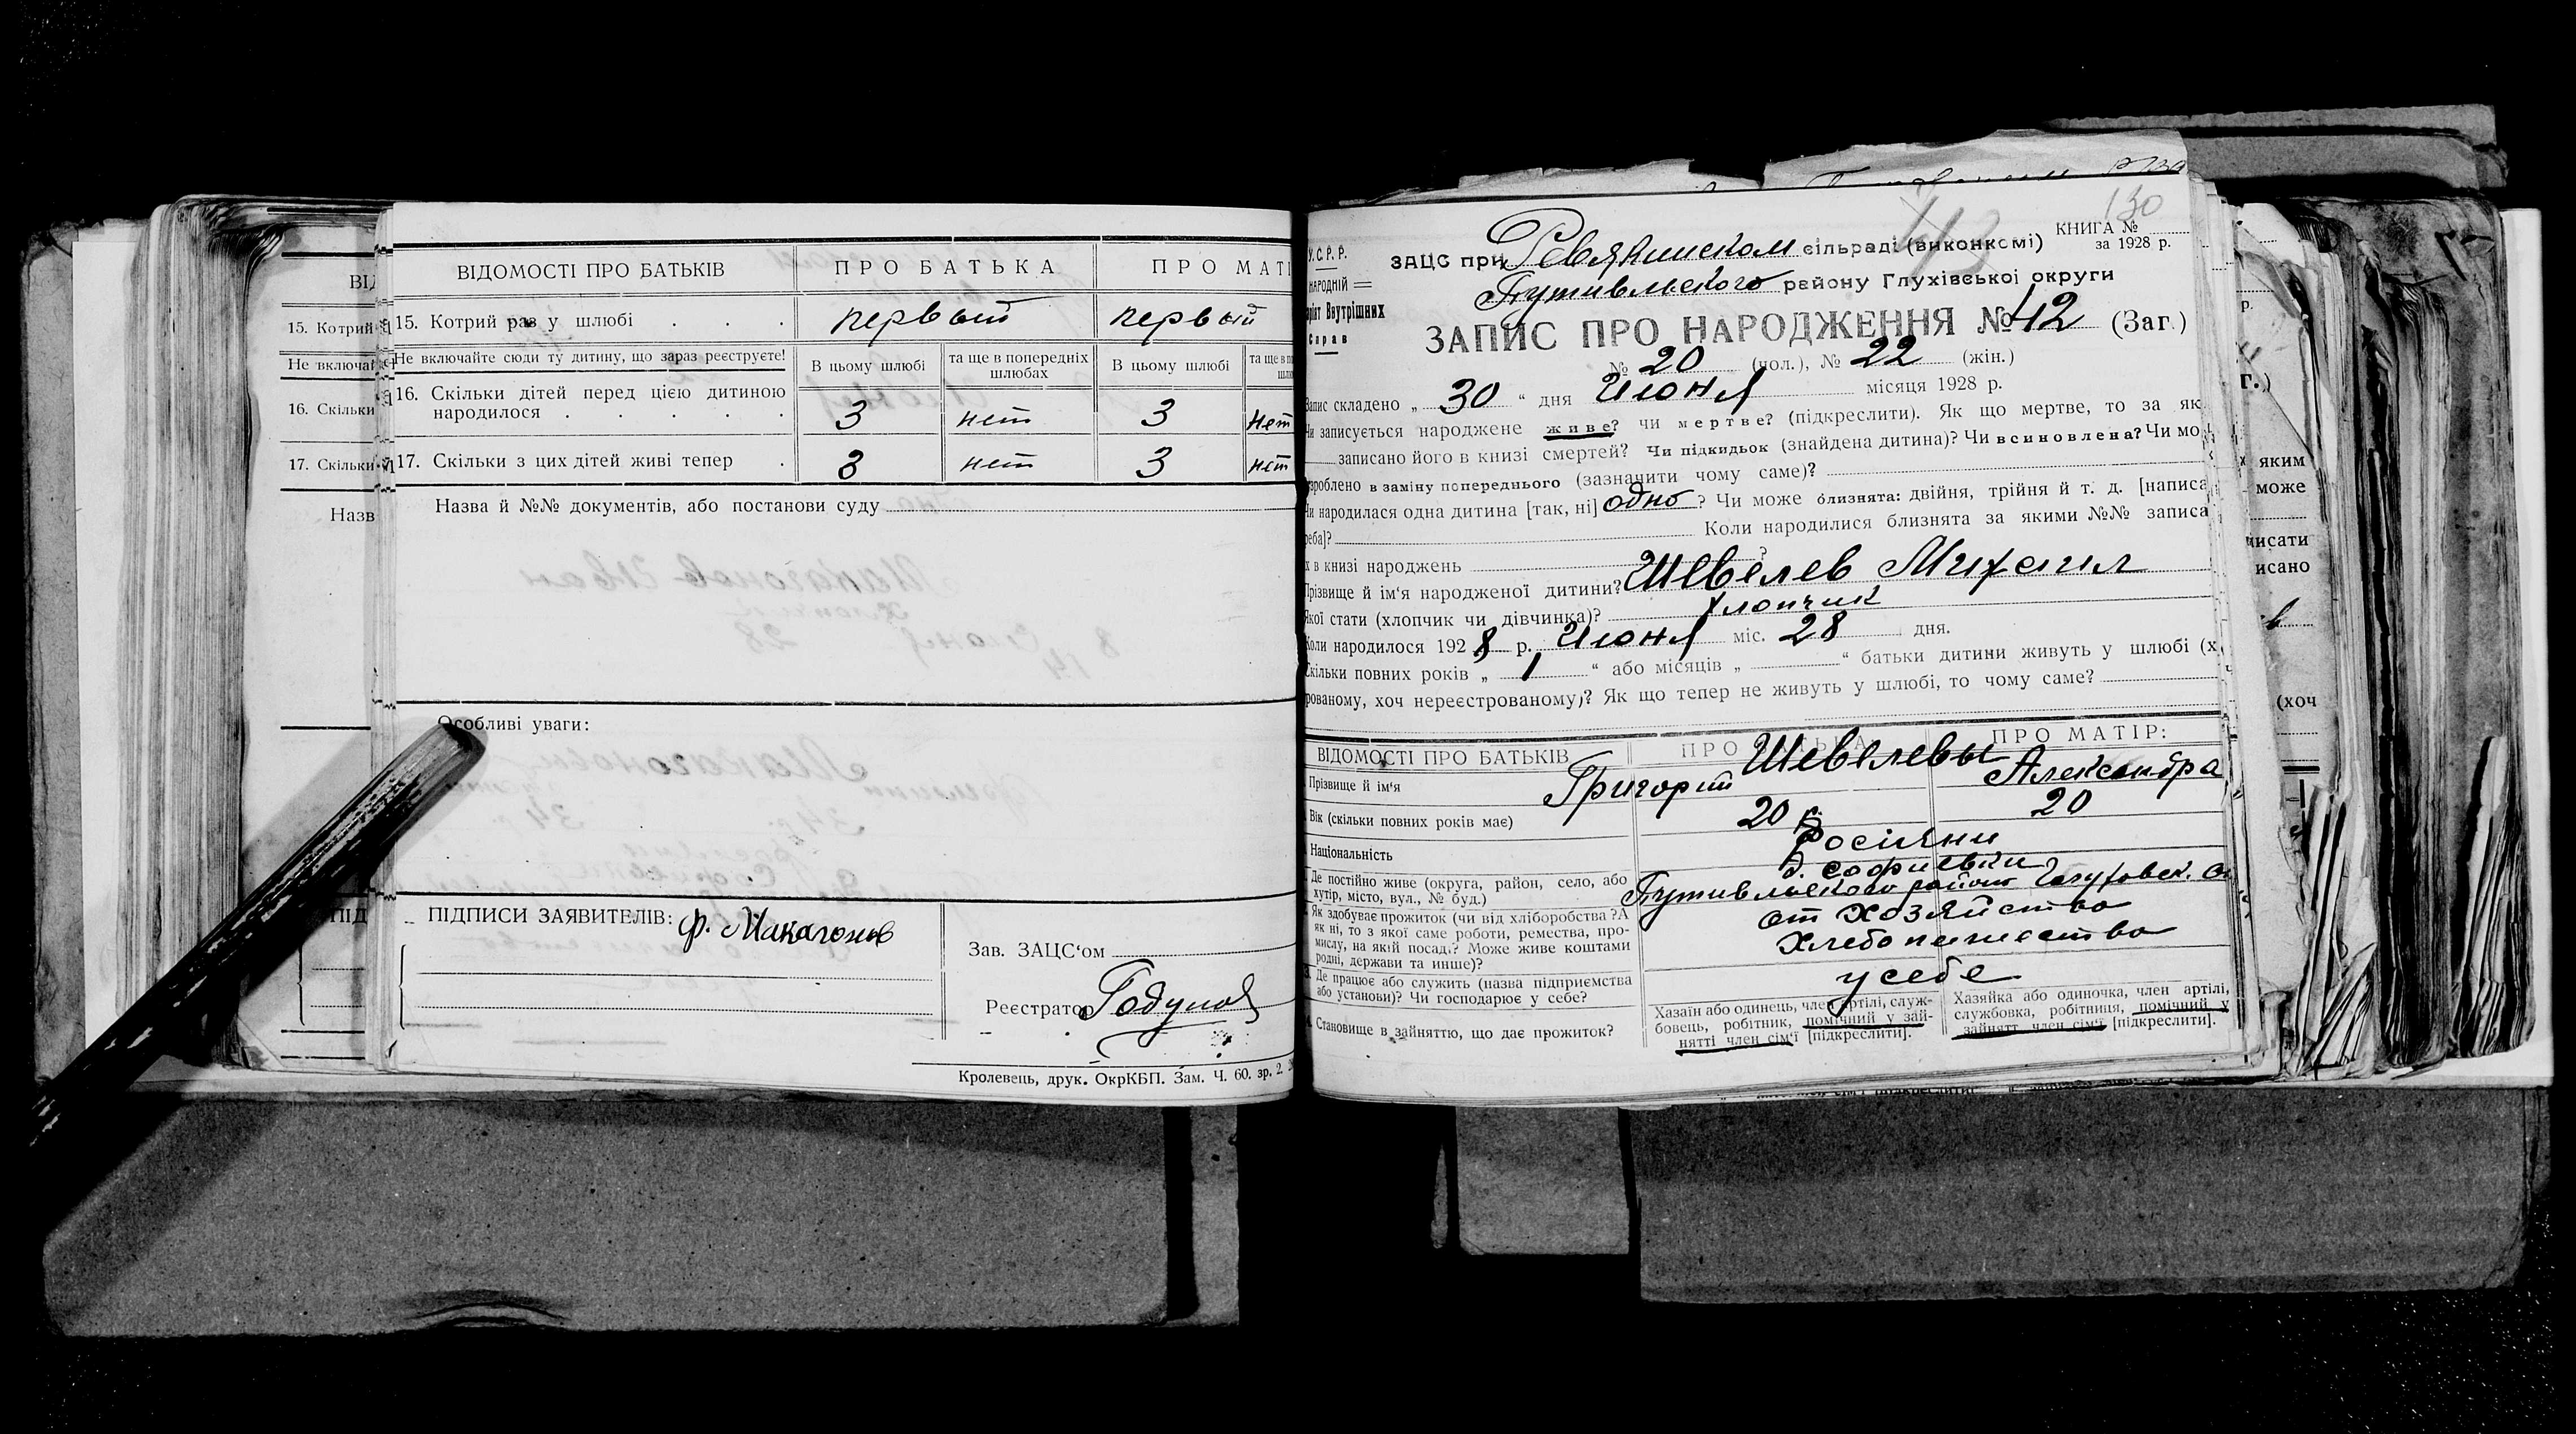 ВІДОМОСТІ ПРО БАТЬКІВ
ПРО БАТЬКА
ПРО МАТІ
15. Котрий раз у шлюбі . . .
первый
первый
Не включайте сюди ту дитину, що зараз реєструєте!
В цьому шлюбі
та ще в попередніх шлюбах
В цьому шлюбі
16. Скільки дітей перед цією дитиною
народилося . . . . .
3
нет
3
нет
17. Скільки з цих дітей живі тепер .
3
нет
3
нет
Назва й №№ документів, або постанови суду
Особливі уваги:
ПІДПИСИ ЗАЯВИТЕЛІВ: Ф. Макагонов
Зав. ЗАЦС‘ом
Реєстратор Годунов
Кролевець, друк. ОкрКБП. Зам. Ч. 60. зр. 2.
15. Котрий
16. Скільки
17. Скільки
Назв
130
У.С.Р.Р.
Внутрішніх
Справ
КНИГА №
за 1928 р.
ЗАЦС при сільраді (виконкомі)
Путивльского району Глухівської округи
ЗАПИС ПРО НАРОДЖЕННЯ № 42 (Заг.)
№ 20 (чол.), № 22 (жін.)
Запис складено „ 30 “ дня Июня місяця 1928 р.
Чи записується народжене живе? чи мертве? (підкреслити). Як що мертве, то за як
записано його в книзі смертей? Чи підкидьок (знайдена дитина)? Чи всиновлена? Чи мо
зроблено в заміну попереднього (зазначити чому саме)?
Чи народилася одна дитина [так, ні] одно ? Чи може близнята: двійня, трійня й т. д. [написа
реба]? Коли народилися близнята за якими №№ записа
х в книзі народжень ?
Прізвище й ім‘я народженої дитини? Шевелев Михаил
Якої стати (хлопчик чи дівчинка)? хлопчик
Коли народилося 1928 р. Июня міс. 28 дня.
Скільки повних років „ 1 “ або місяців „ “ батьки дитини живуть у шлюбі (х
рованому, хоч нереєстрованому)? Як що тепер не живуть у шлюбі, то чому саме?
ВІДОМОСТІ ПРО БАТЬКІВ
ПРО БАТЬКА
ПРО МАТІР:
Шевелевы
Прізвище й ім‘я
Григорий
Александра
Вік (скільки повних років має)
20 р
20
Національність
Росіяни
Де постійно живе (округа, район, село, або
хутір, місто, вул., № буд.)
д. Софиевки
Путивльского района
Як здобуває прожиток (чи від хліборобства? А
як ні, то з якої саме роботи, ремества, про-
мислу, на якій посаді? Може живе коштами
родні, держави та инше)?
от хозяйства
хлебопашества
Де працює або служить (назва підприємства
або установи)? Чи господарює у себе?
у себе
Становище в зайняттю, що дає прожиток?
Хазаїн або одинець, член артілі, служ-
бовець, робітник, помічний у зай-
нятті член сім‘ї [підкреслити].
Хазяйка або одиночка, член артілі,
службовка, робітниця, помічний у
зайнятт член сім‘ї [підкреслити].
яким
може
исати
исано
(хоч